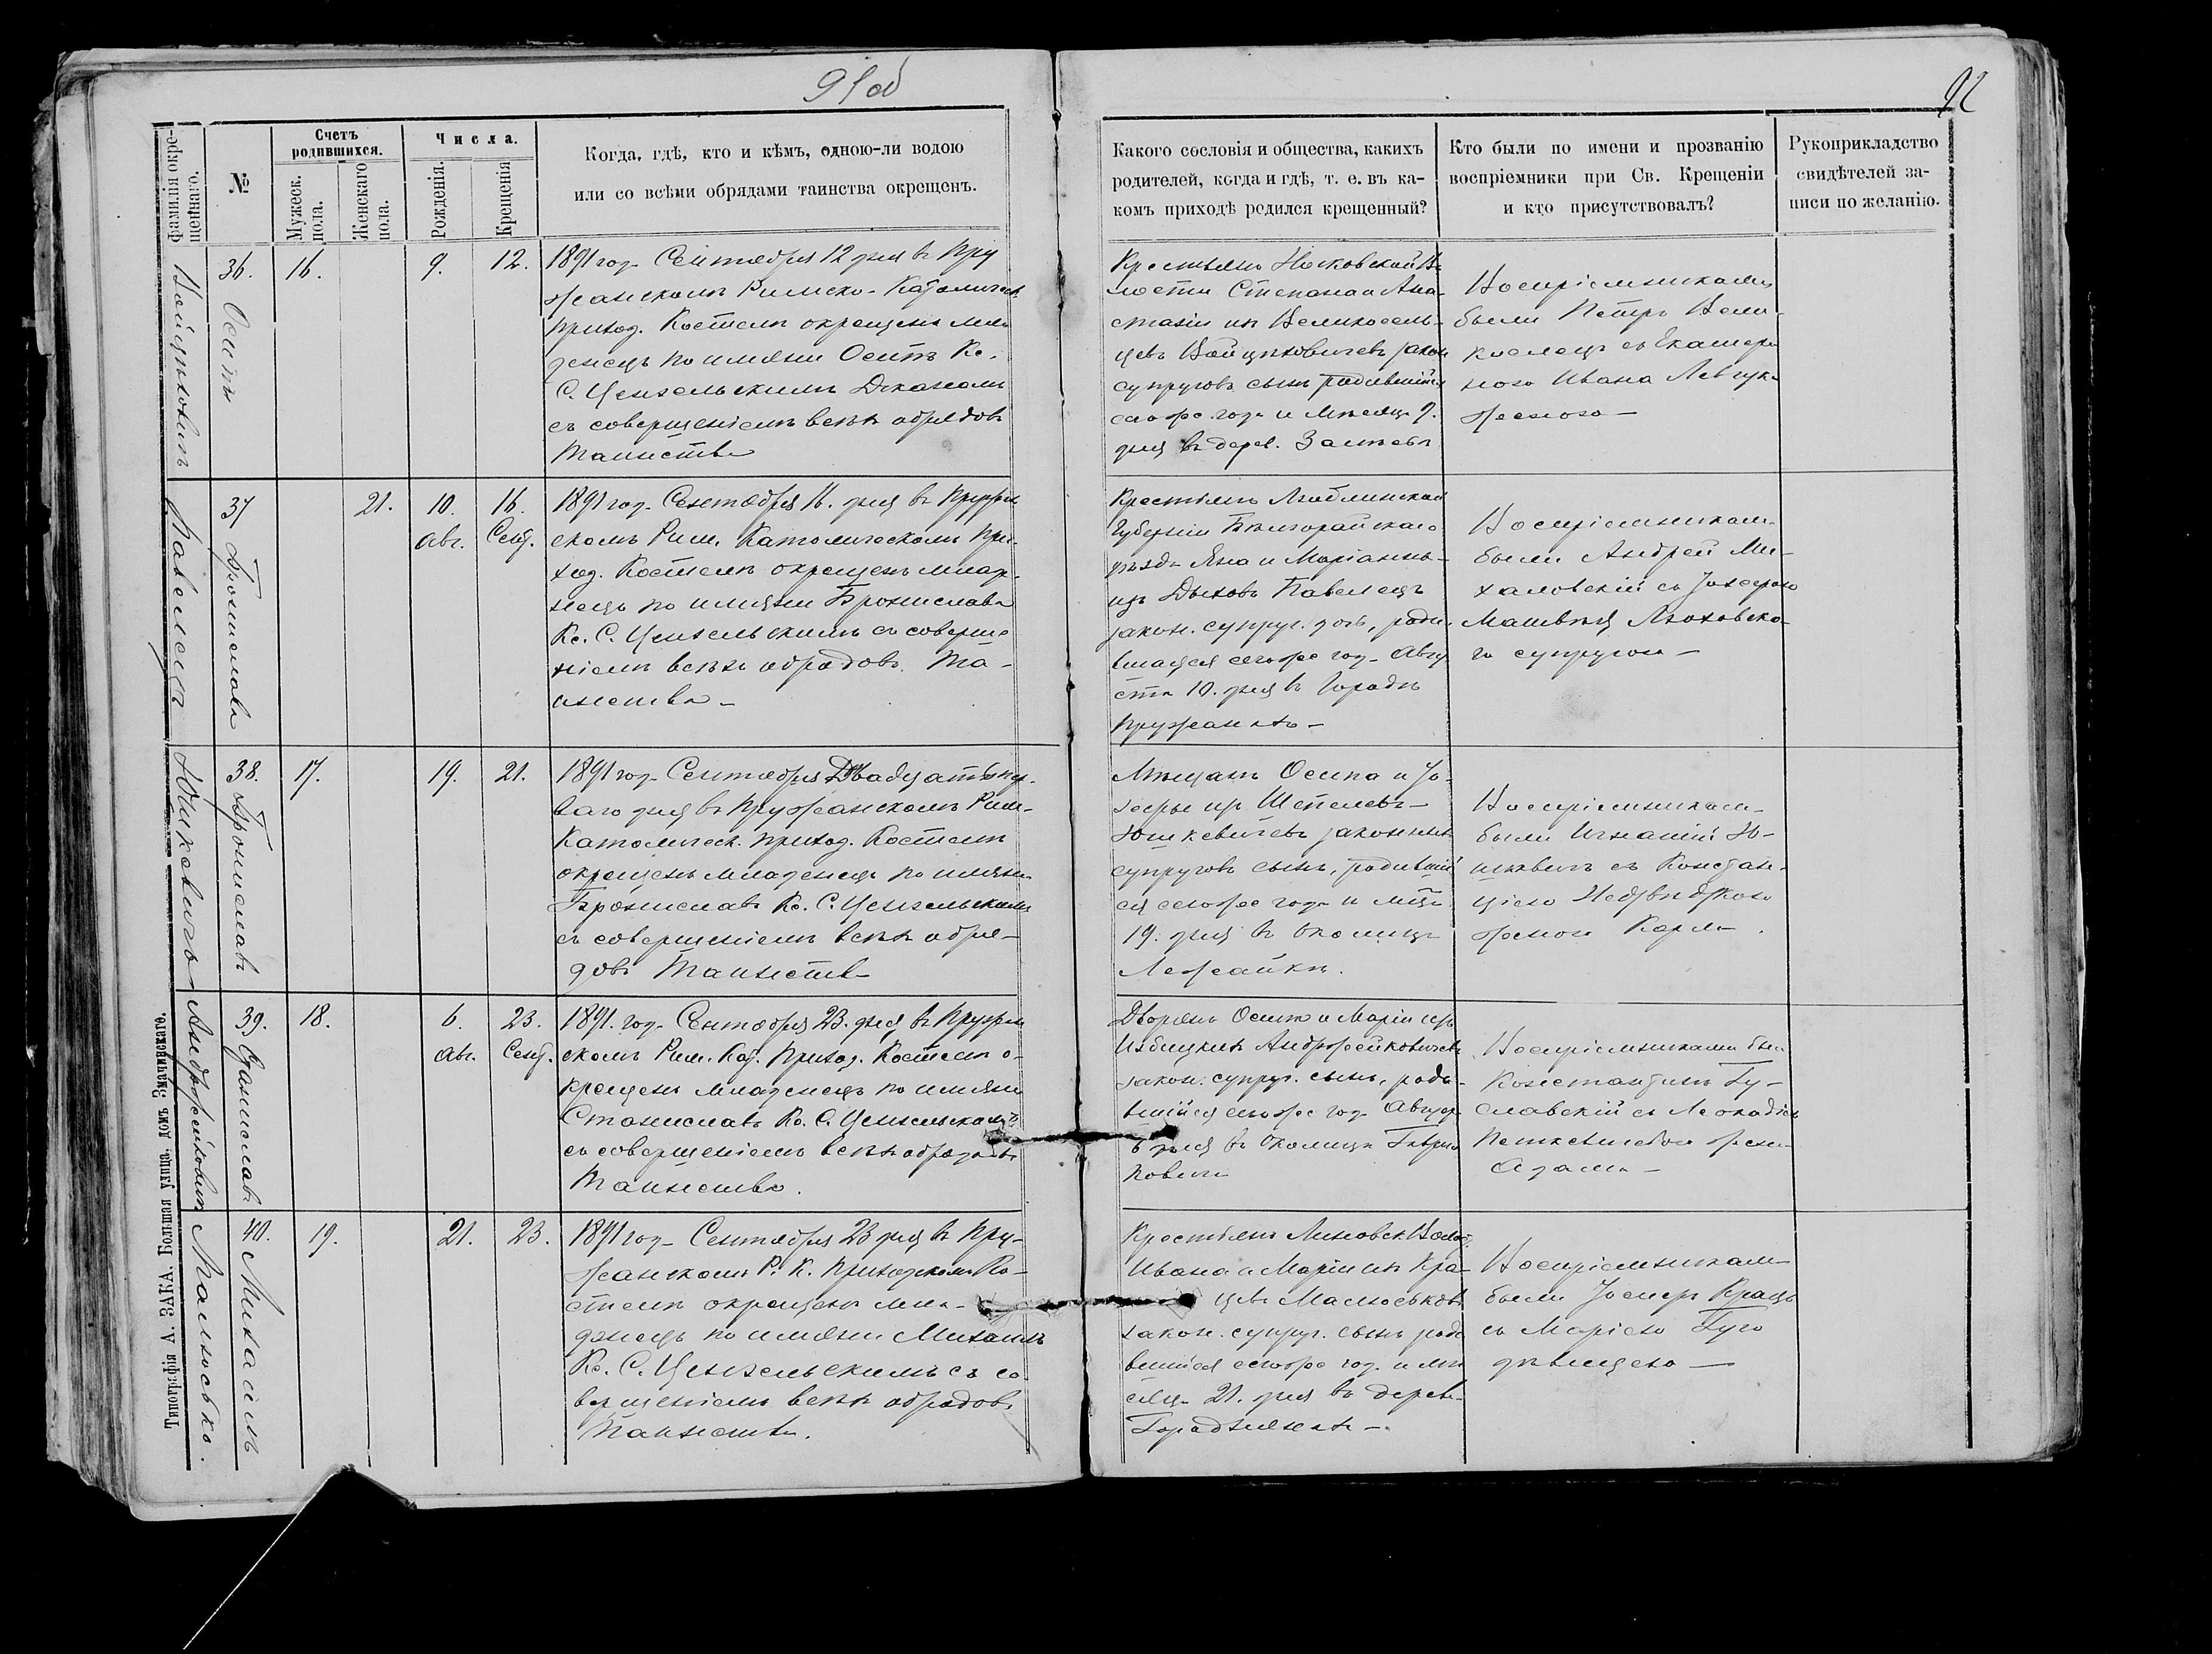 91 об
92
Фамилія окре-
щеннаго.
№
Счетъ
родившихся.
Мужеск.
пола.
Женскаго
пола.
Числа.
Рожденія.
Крещенія
Когда, гдѣ, кто и кѣмъ, одною-ли водою
или со всѣми обрядами таинства окрещенъ.
Какого сословія и общества, какихъ
родителей, когда и гдѣ, т. е. въ ка-
комъ приходѣ родился крещенный?
Кто были по имени и прозванію
воспріемники при Св. Крещеніи
и кто присутствовалъ?
Рукоприкладство
свидѣтелей за-
писи по желанію.
Войцѣховичъ
36. Осипъ
16.
9.
12.
1891 год Сентября 12 дня въ Пру
жанскомъ Римско-Католическ
приход. Костелѣ окрещенъ мла
денецъ по имяни Осипъ Кс.
С. Цензельскимъ Деканомъ
съ совершеніемъ всѣхъ обрядовъ
Таинства
Крестьянъ Носковской Во
лости Степана и Ана-
стазіи изъ Великосель-
цевъ Войцѣховичевъ закон
супруговъ сынъ родившійся
сего же года и мѣсяца 9.
дня въ дерев.
Воспріемниками
были Петръ Вели-
коселецъ съ Екатери
ною Ивана Левчука
женою —
Павелецъ
37 Брониславa
21.
10.
Авг.
16.
Сент.
1891 год Сентября 16. дня въ Пружан
скомъ Рим. Католическомъ При-
ход. Костелѣ окрещенъ млад-
нецъ по имяни Бронислава
Кс. С. Цензельскимъ съ соверше
ніемъ всѣхъ обрядовъ Та-
инства —
Крестьянъ Люблинской
Губерніи Бѣлгорайскаго
уѣзда Яна и Маріанны
изъ Дыховъ Павелецъ
закон. супруг. дочь, роди-
вшаяся сего же год Авгу
ста 10. дня въ Городѣ
Пружанахъ —
Воспріемниками
были Андрей Ми-
халовскій съ Юзефою
Матвѣя Ляховска-
го супругою —
Юшкевичъ
38. Брониславъ
17.
19.
21.
1891 год Сентября Двадцать пер-
ваго дня въ Пружанскомъ Рим-
Католическ. приход. Костелѣ
окрещенъ младенецъ по имяни
Брониславъ Кс. С. Цензельскимъ
съ совершеніемъ всѣхъ обря-
довъ Таинства
Мѣщанъ Осипа и Іо-
зефы изъ Шепелевъ
Юшкевичевъ законныхъ
супруговъ сынъ, родивший
ся сего же года и мѣц
19. дня въ околицѣ
Лежайкѣ.
Воспріемниками
были Игнатій Ю-
шкевичъ съ Констан-
ціею Недзвѣдзкою
женою Карла.
Андржейковичъ
39. Станиславъ
18.
6.
Авг.
23.
Сент.
1891. год Сентября 23. дня въ Пружан
скомъ Рим. Кат. Приход. Костелѣ о-
крещенъ младенецъ по имяни
Станиславъ Кс. С. Цензельскимъ
съ совершеніемъ всѣхъ обрядовъ
Таинства.
Дворянъ Осипа и Маріи изъ
Избицкихъ Андржейковичевъ
закон. супруг. сынъ, роди-
вшійся сего же год Августа
6 дня въ Околицѣ Гаври
ковичи
Воспріемниками были
Константинъ Гу-
славскій съ Леокадіею
Петкевичевою женою
Адама —
Малюсько.
40. Михаилъ
19.
21.
23.
1891 год Сентября 23 дня въ Пру-
жанскомъ Р. К. Приходскомъ Ко-
стелѣ окрещенъ мла-
денецъ по имяни Михаилъ
Кс. С. Цензельскимъ съ со
вершеніемъ всѣхъ обрядовъ
Таинства.
Крестьянъ Линовск Волост.
Ивана и Маріи изъ Кра-
цевъ Малюськовъ
закон. супруг. сынъ роди
вшійся сего же год. и мѣ
сяца 21. дня въ дерев.
Городнянахъ —
Воспріемниками
были Іосифъ Крацъ
съ Маріею Гуго
дѣвицею —
Типографія А. ЗАКА. Большая улица, домъ Значинскаго.